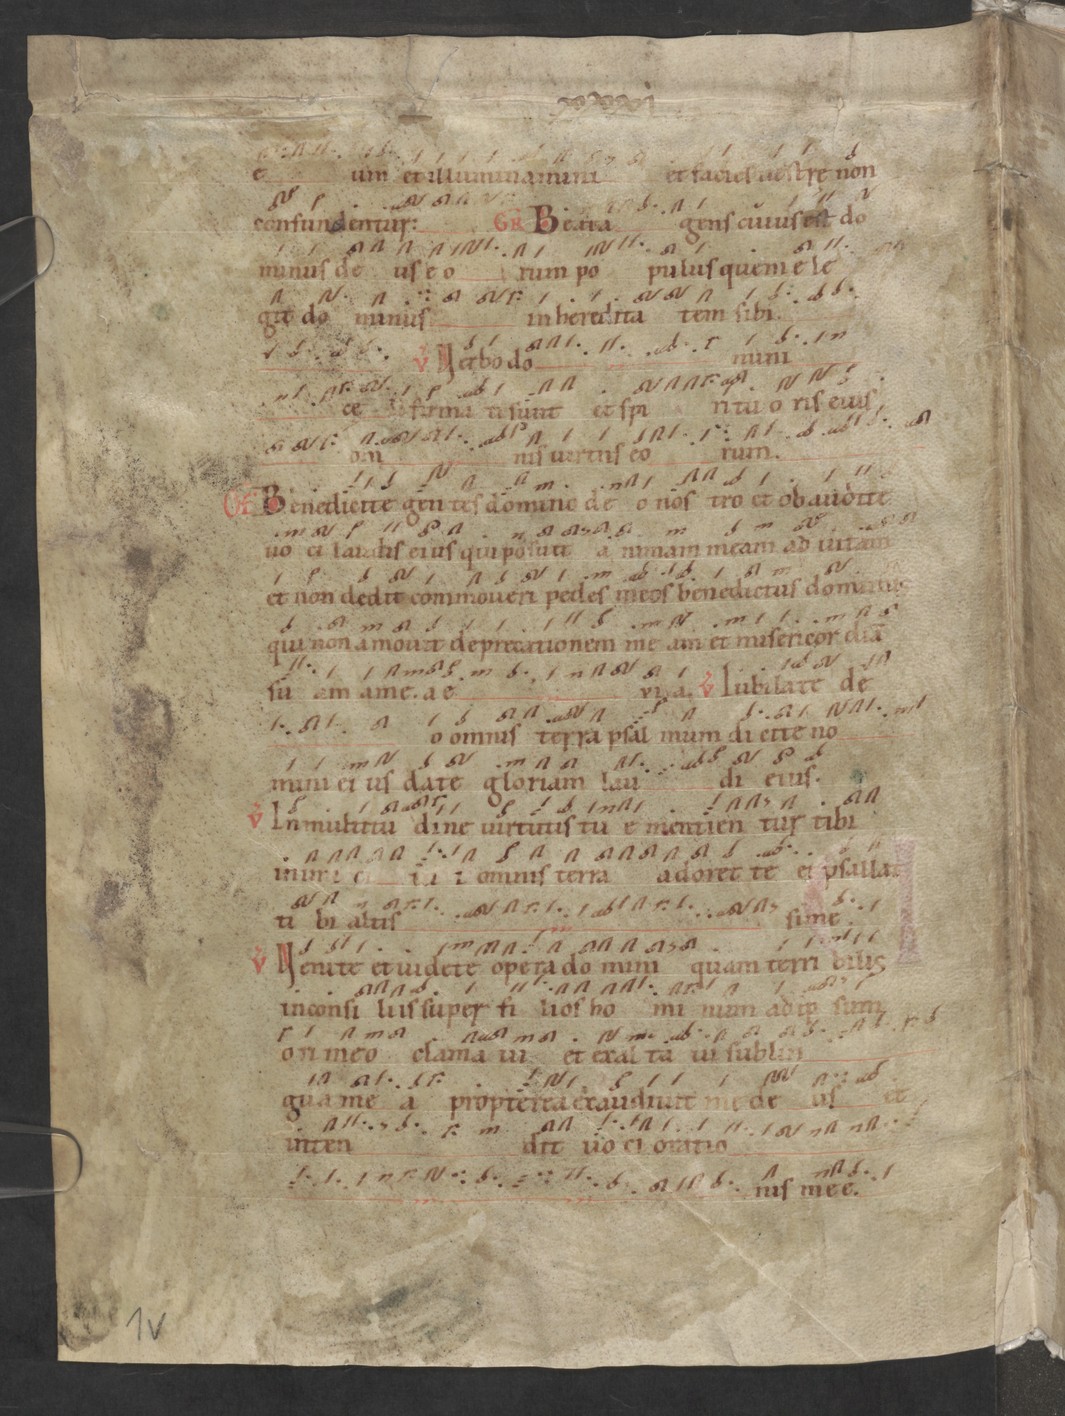 e um et illuminamini et facies uestre non
confundentur: GR Beata gens cuius est do
minus de us e o rum po pulus quem e le
git do minus in heredita tem sibi.
V Uerbo do mini
ce li firma ti sunt et spi ri tu o ris eius
om nis uirtus eo rum.
OF Benedicite gen tes domino de o nos tro et obaudite
uo ci laudis eius qui posuit a nimam meam ad uitam
et non dedit commoueri pedes meos benedictus dominus
qui non amouit deprecationem me am et misericor diā
su am a me. a e uia. V Iubilate de
o omnis terra psal mum dicite no
mini ei us date gloriam lau di eius.
V In multitu dine uirtutis tu e mentien tur tibi
inimi ci tu i omnis terra adoret te et psallat
ti bi altis sime.
V Uenite et uidete opera do mini quam terri bilis
in consi liis super fi lios ho mi num ad ip sum
ore meo clama ui et exal ta ui sub lin
gua me a propterea exaudiuit me de us et
inten dit uo ci oratio
nis mee.
1v